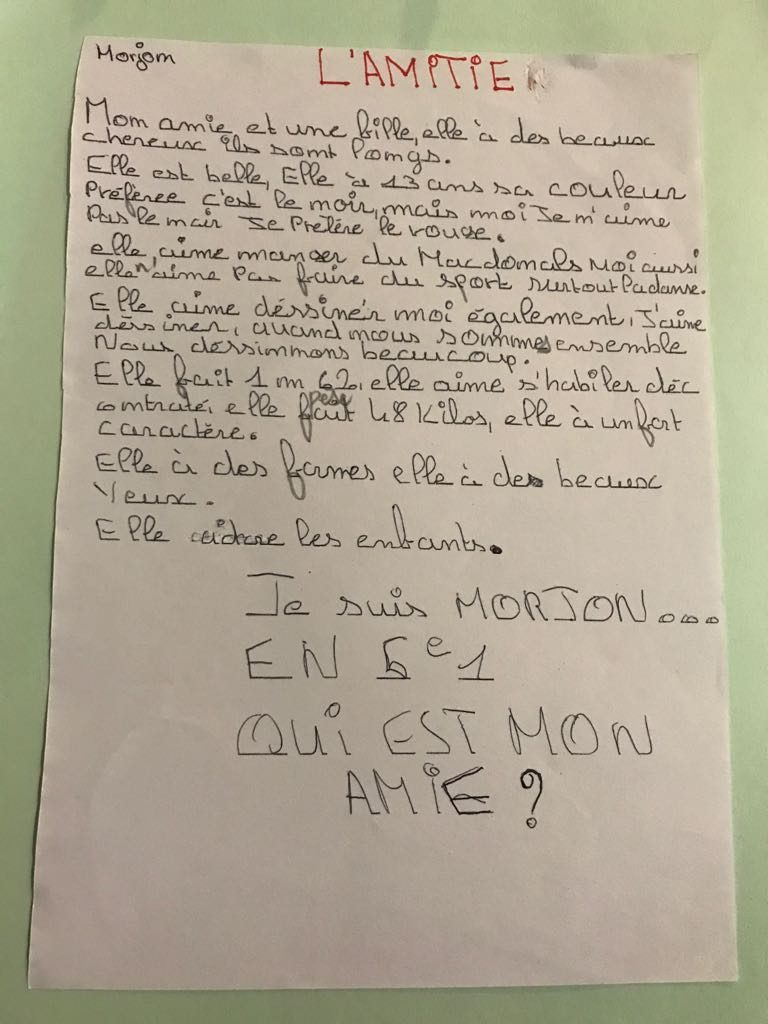 Morjom
L'AMITIE
Mom amie et une fille, elle à des beaux
chereux ils somt lomgs.
Elle est belle, Elle à 13 ans sa couleur
Préférée c'est le moir, mais moi Je m'aime
Pas le mair Je Préfére le rouge.
elle aime manger du Macdomals Moi aussi
elle n'aime Pas faire du sport surtout la danse.
Elle aime déssiner moi également, J'aime
dessiner, quand mous sommes ensemble
Nous dessimmons beaucoup.
Elle fait 1 m 62, elle aime s'habiler déc
omtraté, elle pese 48 Kilos, elle à un fort
caractère.
Elle à des formes elle à des beaux
Yeux.
Elle adore les enfants.
Je suis MORJON....
EN 5e1
QUI EST MON
AMIE ?